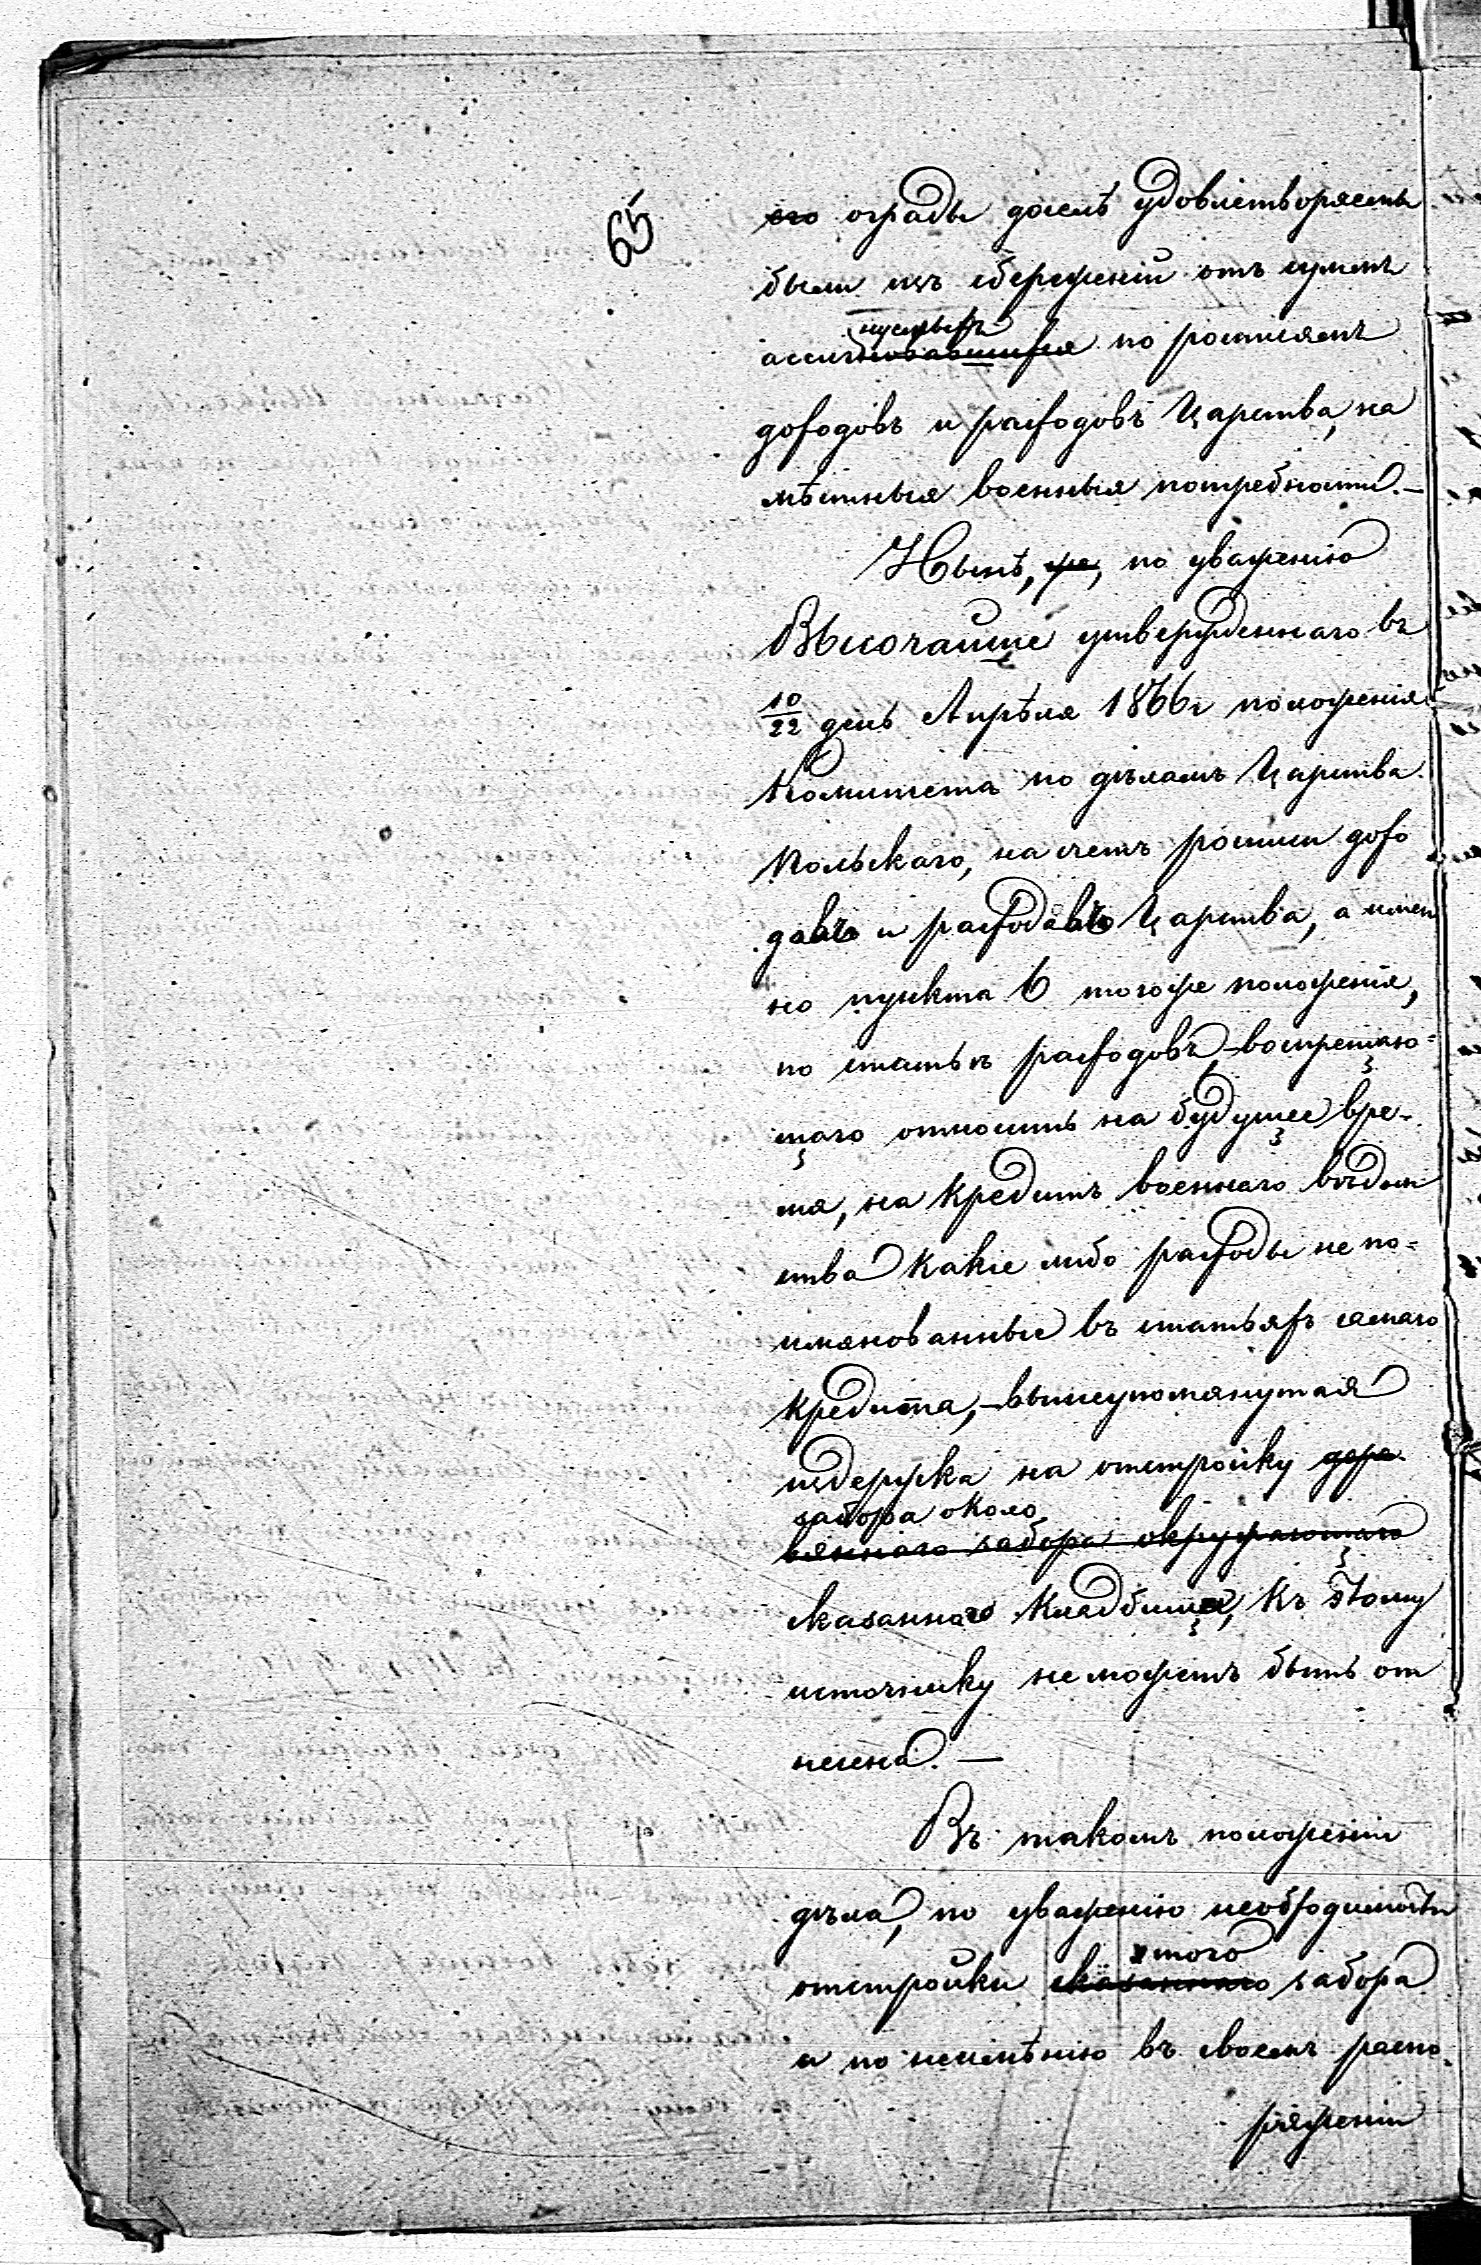 65
его ограды доселѣ удовлетворяемы
были изъ сбереженій отъ суммъ
нуемыхъ
ассигновавшихся по росписямъ
доходовъ и расходовъ Царства, на
мѣстныя военныя потребности. —
Нынѣ, же, по уваженію
Высочайше утвержденнаго въ
10/22 день Апрѣля 1866 г положенія
Комитета по дѣламъ Царства
Польскаго, на счетъ росписи дохо
довъ и расходовъ Царства, а имен
но пункта 6 тогоже положенія,
по статьѣ расходовъ, – воспрещаю=
щаго относить на будущее вре-
мя, на кредитъ военнаго вѣдом
ства какіе либо расходы не по=
имянованные въ статьяхъ самаго
кредита, – вышеупомянутая
издержка на отстройку дере
забора около
вяннаго забора окружающаго
сказаннаго кладбища, къ этому
источнику не можетъ быть от
несена. —
Въ такомъ положеніи
дѣла, по уваженію необходимости
этого
отстройки сказаннаго забора
и по неимѣнію въ своемъ распо-
ряженіи